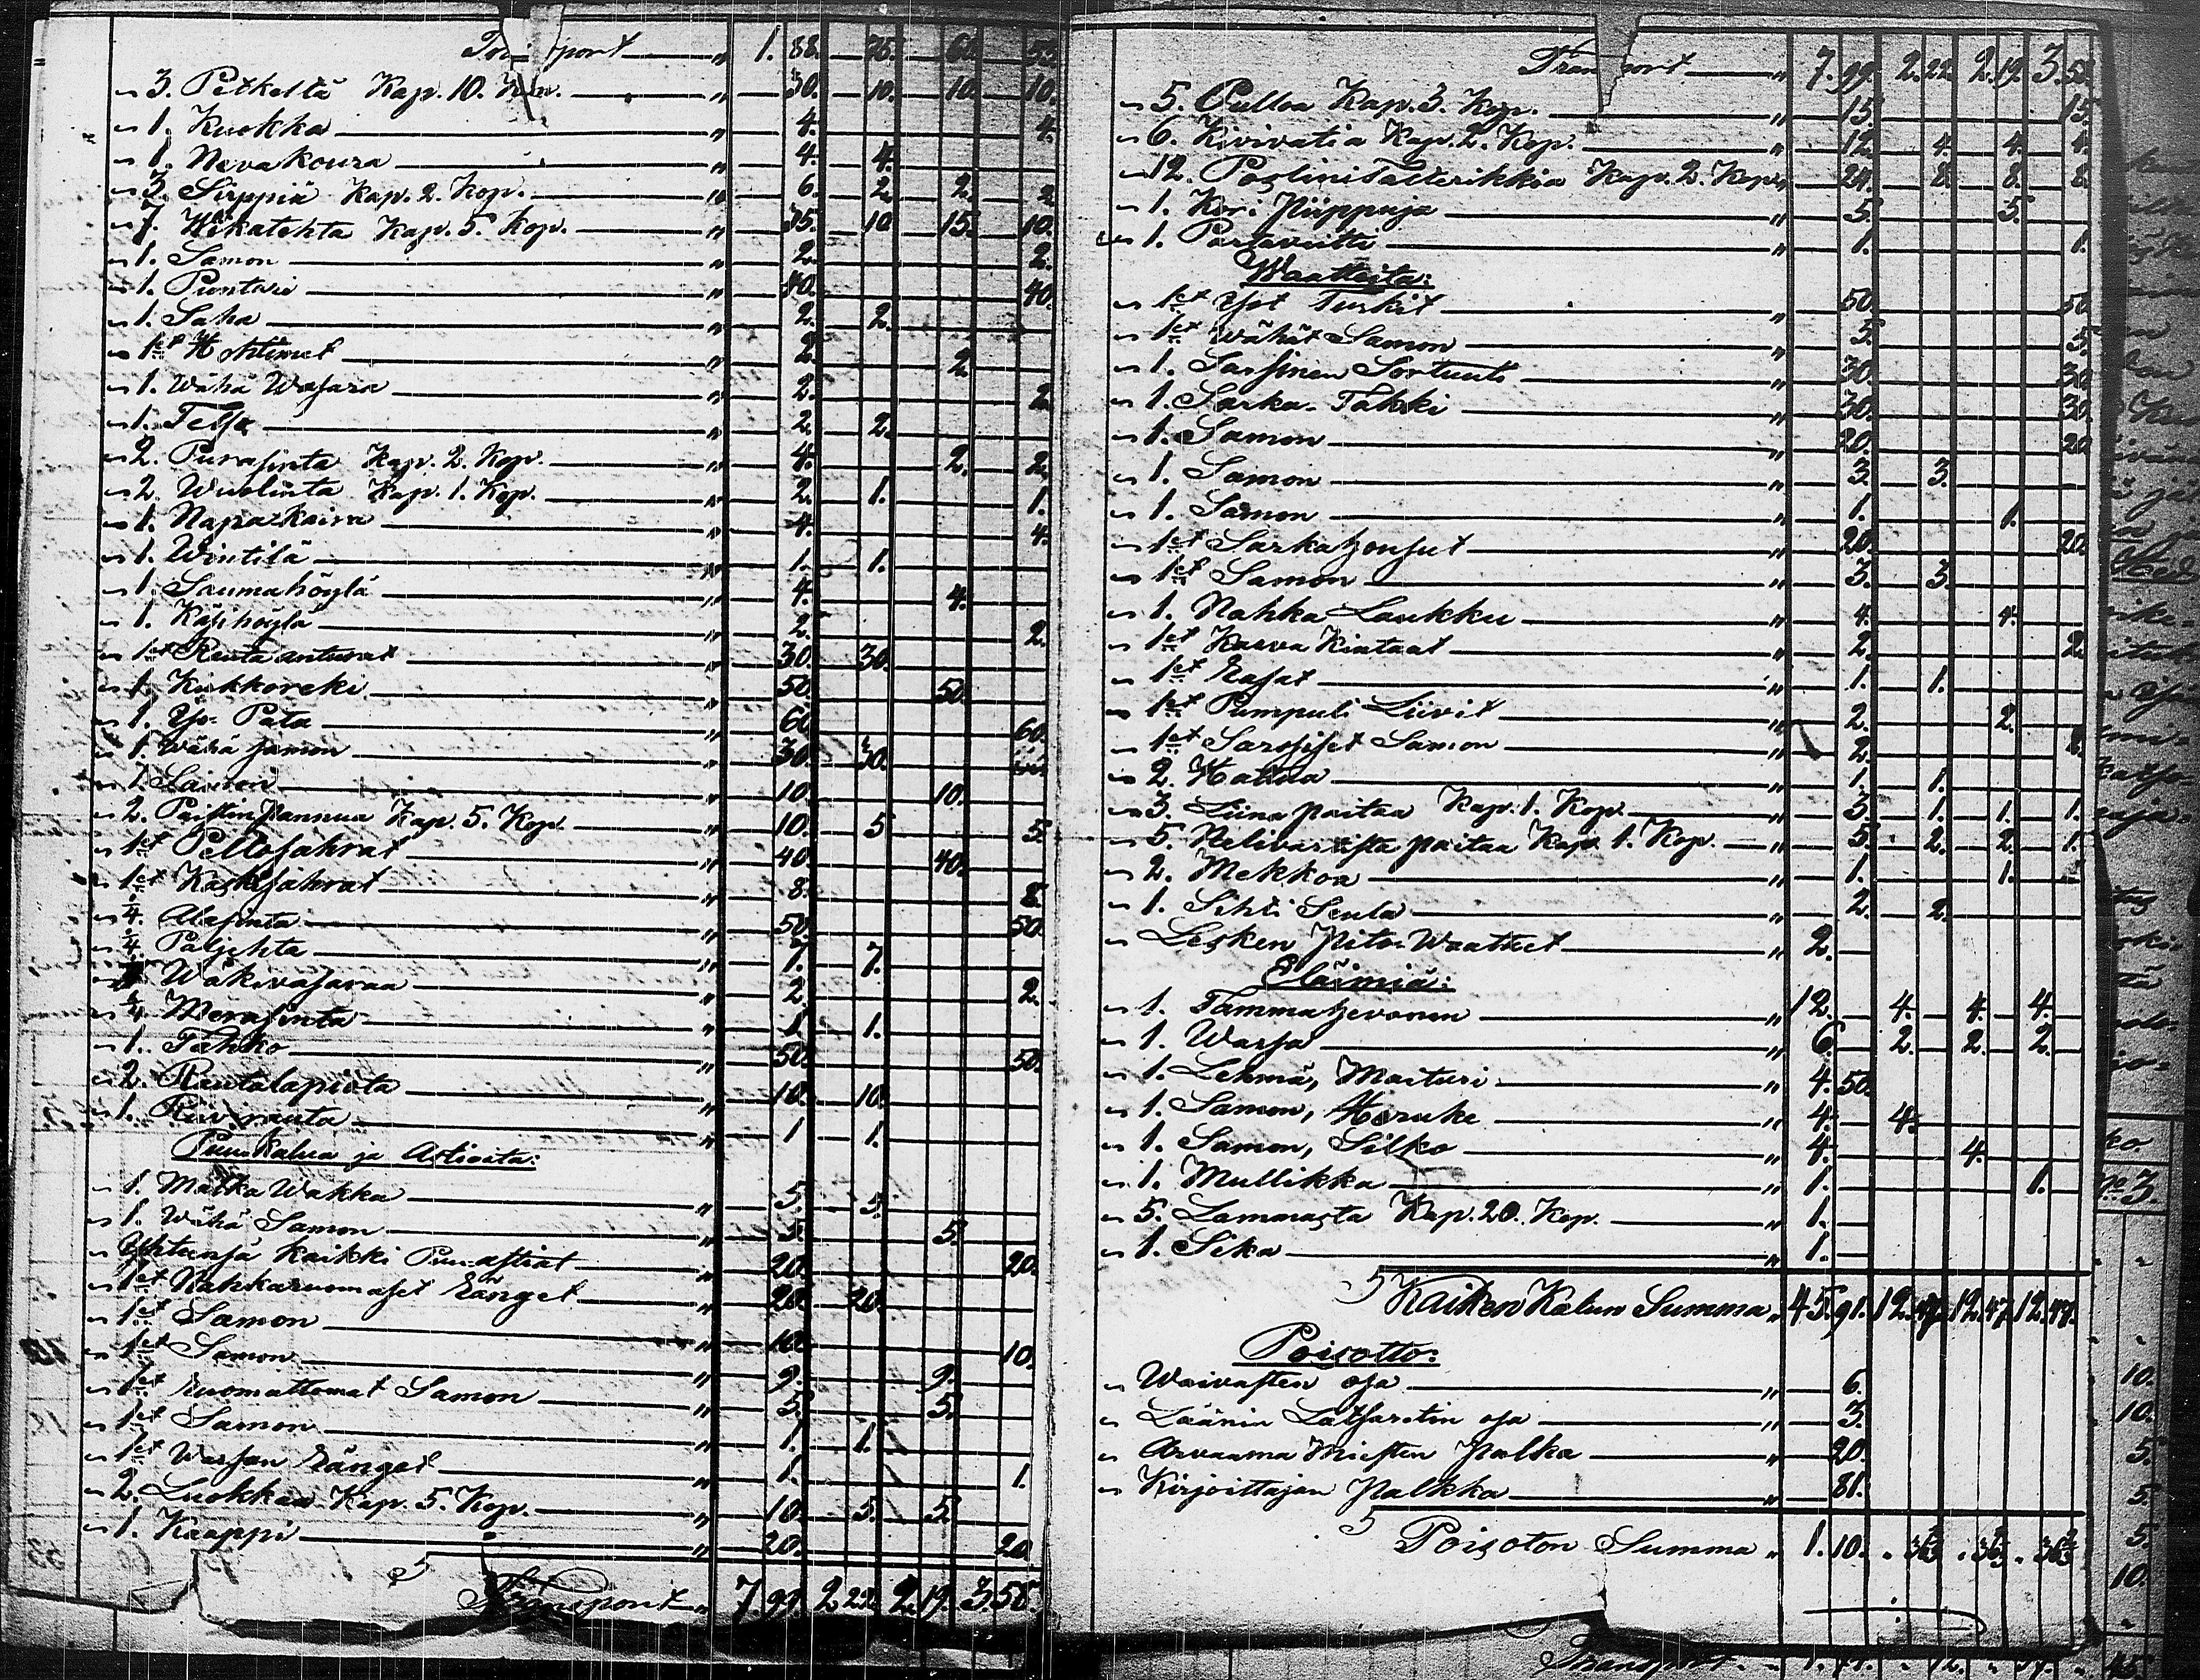 Transport " 1. 88. 75. 60. 53.
" 3. Petkeltä Kap. 10. Kop. " 30. 10. 10. 10.
" 1. Kuokka " 4. 4.
" 1. Nevakoura " 4. 4.
" 3. Sirppiä Kap. 2. Kop. " 6. 2. 2. 2
" 7. Wikatehta Kap. 5. Kop. " 35. 10. 15. 10.
" 1. Samon " 2. 2.
" 1. Puntari " 40. 40.
" 1. Saha " 2. 2.
" 1et Hohtimet " 2. 2.
" 1. Wähä Wasara " 2. 2.
" 1. Telso " 2. 2.
" 2. Purasinta Kap. 2. Kop. " 4. 2. 2.
" 2. Wuolinta Kap. 1. Kop. " 2. 1. 1.
" 1. Napakaira " 4. 4.
" 1. Wintilä " 1. 1.
" 1. Saumahöylä " 4. 4.
" 1. Käsihöylä " 2. 2.
" 1et Rauta anturat " 30. 30.
" 1. Kirkkoreki " 50. 50.
" 1. Iso Pata " 60. 60.
" 1. Wähä samon " 30. 30.
" 1. Samon " 10. 10.
" 2. Paistin pannua Kap. 5. Kop. " 10. 5 5.
" 1et Peltosahrat " 40. 40.
" 1et Kaskisahrat " 8. 8.
" 4. Alasinta " 50. 50.
" 4. Paljehta " 7. 7.
" Wäkivasaraa " 2. 2.
" 4. Merasinta " 1. 1.
" 1. Tahko " 50. 50.
" 2. Rautalapiota " 10. 10.
" 1. rauta " 1 1.
Puu Kalua ja Astioita:
" 1. Matka Wakka " 5. 5.
" 1. Wähä Samon " 5. 5.
" Yhtensä Kaikki Puu astiat " 20. 20.
" 1et Nahkaruomaset Länget " 20. 20.
" 1et Samon " 10. 10.
" 1et Samon " 9. 9.
" 1et ruomattomat Samon " 5. 5.
" 1et Samon " 1. 1.
" 1et Warsan Länget " 1. 1.
" 2. Luokkaa Kap. 5. Kop. " 10. 5. 5.
" 1. Kaappi " 20. 20
Transport " 7. 99. 2 22. 2. 19. 3. 58.
Transport " 7. 99. 2. 22. 2. 19. 3. 58.
" 5. Pulloa Kap. 3. Kop. " 15. 15.
" 6. Kivivatia Kap. 2. Kop. " 12. 4. 4. 4.
" 12. Poslini Talterikkia Kap. 2. Kop. " 24. 8. 8. 8
" 1. Kori Piippuja " 5. 5.
" 1. Partaveitti " 1. 1.
Waatteita:
" 1et Iyt Turkit " 50. 50
" 1et Wähät Samon " 5. 5.
" 1. Sarsinen Sortuuti " 30. 30
" 1. Sarka-Takki " 30. 30.
" 1. Samon " 20. 20
" 1. Samon " 3. 3.
" 1. Samon " 1. 1.
" 1et Sarkahousut " 20. 20.
" 1et Samon " 3. 3.
" 1. Nahka Laukku " 4. 4.
" 1et Karva Kintaat " 2. 2.
" 1et Rasat " 1. 1.
" 1et Pumpuli Liivit " 2. 2.
" 1et Samon " 2. 2.
" 2. Hattua " 1. 1.
" 3. Liina paitaa Kap. 1. Kop. " 3. 1. 1. 1.
" 5. Nelivartista paitaa Kap. 1. Kop. " 5. 2. 2. 1.
" 2. Mekkoa " 1. 1.
" 1. Sihti Seula " 2. 2.
" Lesken Pito-Waatteet " 2.
Eläimiä:
" 1. Tammahevonen " 12. 4. 4. 4.
" 1. Warsa " 6. 2. 2. 2.
" 1. Lehmä, Maituri " 4. 50.
" 1. Samon, Heruke " 4. 4.
" 1. Samon, Silko " 4. 4.
" 1. Mullikka " 1. 1.
" 5. Lammasta Kap. 20. Kop. " 1.
" 1. Sika " 1.
Kaiken Kalun Summa " 45. 91. 12. 47. 12. 47. 12. 47.
Poisotto:
" Waivasten osa " 6.
" Läänin Latsaretin osa " 3.
" Arvaama Miesten palka " 20.
" Kirjoittajan Palkka " 81.
Poisoton Summa " 1. 10. " 36 2/3 " 36 2/3 " 36 2/3
Transport.